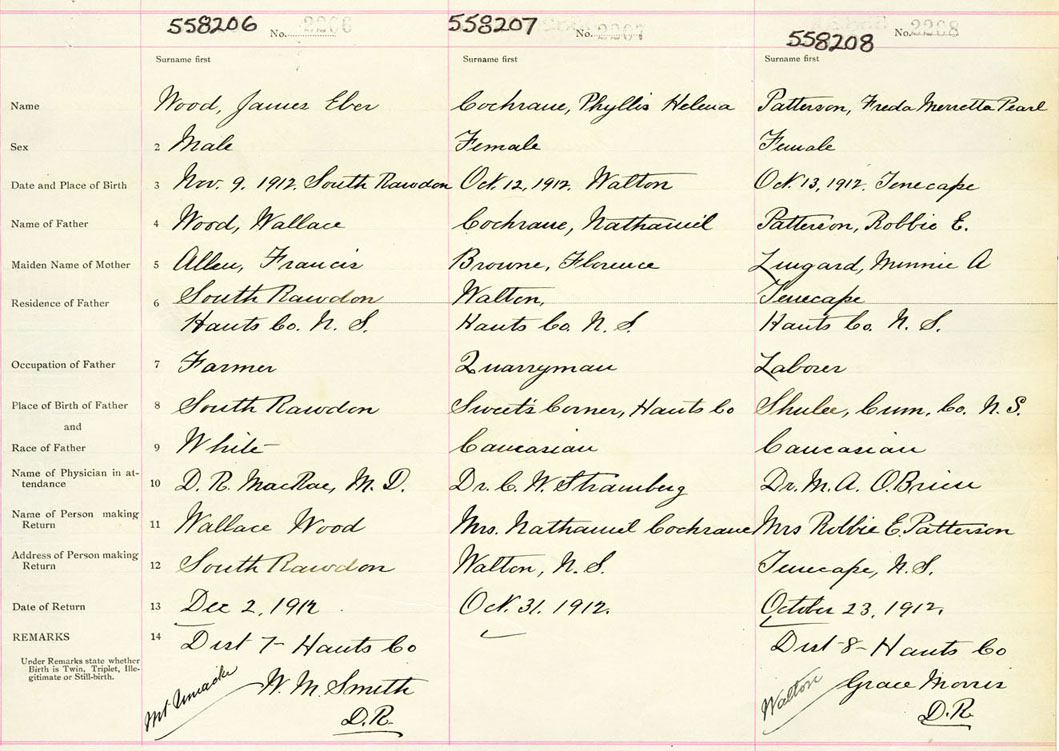 558206 No. 2206 558207 No. 2207 558208 No. 2208
Surname first Surname first Surname first
Name Wood, James Eber Cochrane, Phyllis Helena Patterson, Freda Merretta Pearl
Sex 2 Male Female Female
Date and Place of Birth 3 Nov. 9. 1912. South Rawdon Oct. 12, 1912. Walton Oct. 13, 1912. Tenecape
Name of Father 4 Wood, Wallace Cochrane, Nathaniel Patterson, Robbie E.
Maiden Name of Mother 5 Allen, Francis Browne, Florence Lingard, Minnie A
Residence of Father 6 South Rawdon Walton, Tenecape
Hants Co. N. S. Hants Co. N. S. Hants Co. N. S.
Occupation of Father 7 Farmer Quarryman Laborer
Place of Birth of Father 8 South Rawdon Sweet's Corner, Hants Co Shulee, Cum. Co. N. S.
and
Race of Father 9 White Caucasian Caucasian
Name of Physician in at-
tendance 10 D. R. MacRae, M. D. Dr. C. W. Dr. M. A. O.Brien
Name of Person making
Return 11 Wallace Wood Mrs. Nathaniel Cochrane Mrs Robbie E. Patterson
Address of Person making
Return 12 South Rawdon Walton, N. S. Tenecape, N. S.
Date of Return 13 Dec 2, 1912 Oct. 31. 1912. October 23, 1912.
REMARKS 14 Dist 7- Hants Co Dist-8- Hants Co
Under Remarks state whether
Birth is Twin, Triplet, Ille-
gitimate or Still-birth.
Mt Uniacke W. M. Smith Walton Grace Morris
D.R. D.R.